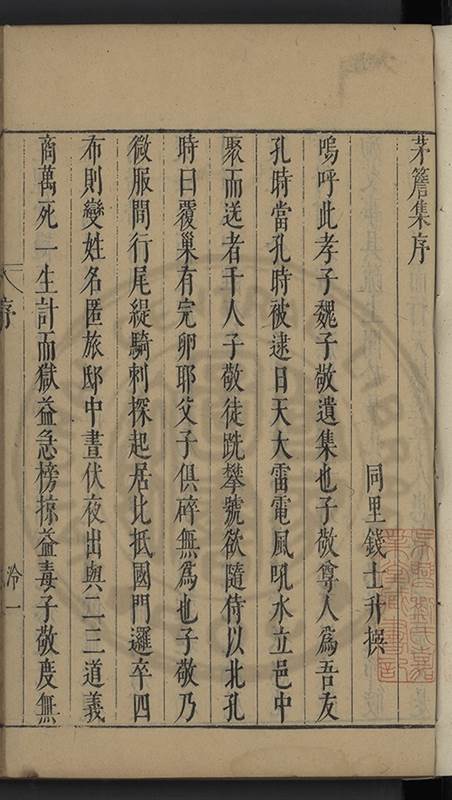 茅簷集序
同里錢士升撰
嗚呼此孝子魏子敬遺集也子敬尊人爲吾友
孔時當孔時被逮日天大雷電風吼水立邑中
聚而送者千人子敬徒跣攀號欲隨侍以北孔
時曰覆巢有完卵耶父子俱碎無爲也子敬乃
微服間行尾緹騎刺探起居比抵國門邏卒四
布則變姓名匿旅邸中晝伏夜出與二三道義
商萬死一生計而獄益急榜掠益毒子敬度無
序
一